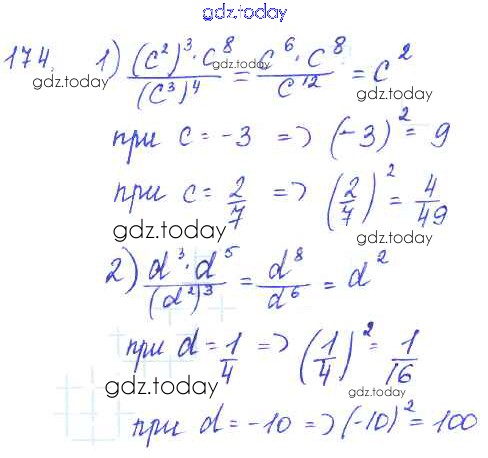 gdz.today
174. 1) (c²)³·c⁸/(c³)⁴ = c⁶·c⁸/c¹² = c²
gdz.today gdz.today
при c = -3 => (-3)² = 9
при c = 2/7 => (2/7)² = 4/49
gdz.today gdz.today
2) d³·d⁵/(d²)³ = d⁸/d⁶ = d²
при d = 1/4 => (1/4)² = 1/16
gdz.today gdz.today
при d = -10 => (-10)² = 100